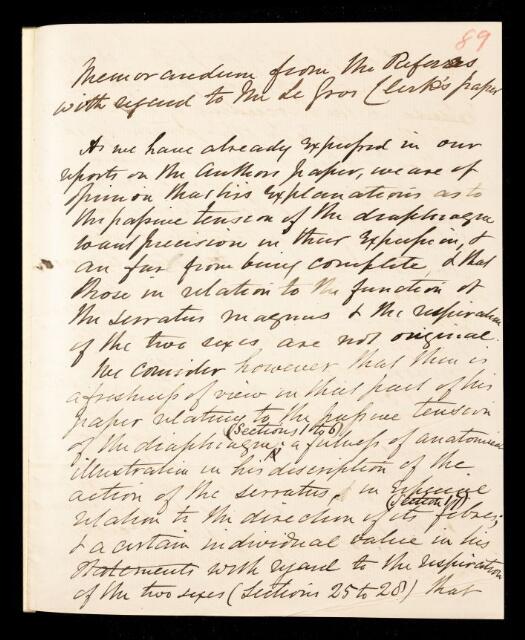 89
Memorandum from the Referees
with regard to Mr Le Gros Clerk's paper
As we have already expressed in our
reports on the Authors paper, we are of
opinion that his explanations as to
the passive tension of the diaphragm
want precision in their expression, &
are far from being complete, & that
those in relation to the function of
the serratus magnus & the respiration
of the two sexes are not original.
We consider however that there is
a freshness of view in that part of his
paper relating to the passive tension
(Sections 1 to 6)
of the diaphragm; a fulness of anatomical
illustration in his discription of the
action of the serratus, in
(Section 17)
relation to the direction of its fibres;
& a certain individual value in his
statements with regard to the respiration
of the two sexes (Sections 25 to 28) that